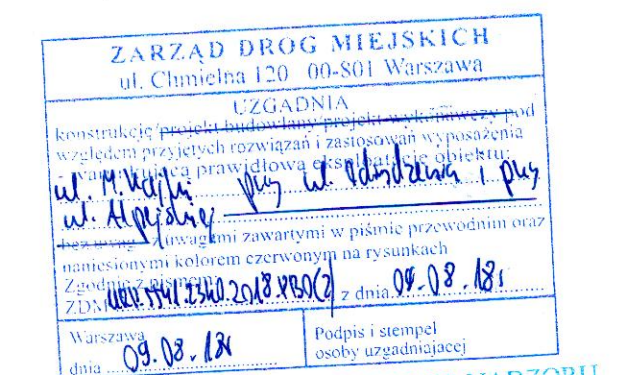 ZARZĄD DRÓG MIEJSKICH
ul. Chmielna 120 00-801 Warszawa
UZGADNIA
konstrukcję/projekt budowlany/projekt wykonawczy pod
względem przyjętych rozwiązań i zastosowań wyposażenia
prawidłową eksploatację obiektu:
ul. M. przy ul. i przy
ul. Alpejskiej
bez uwag z uwagami zawartymi w piśmie przewodnim oraz
naniesionymi kolorem czerwonym na rysunkach
Zgodnie z pismem:
ZDM 5541.2340.2018 z dnia 09.08.18r
Warszawa
dnia 09.08.18r
Podpis i stempel
osoby uzgadniającej
NADZORU